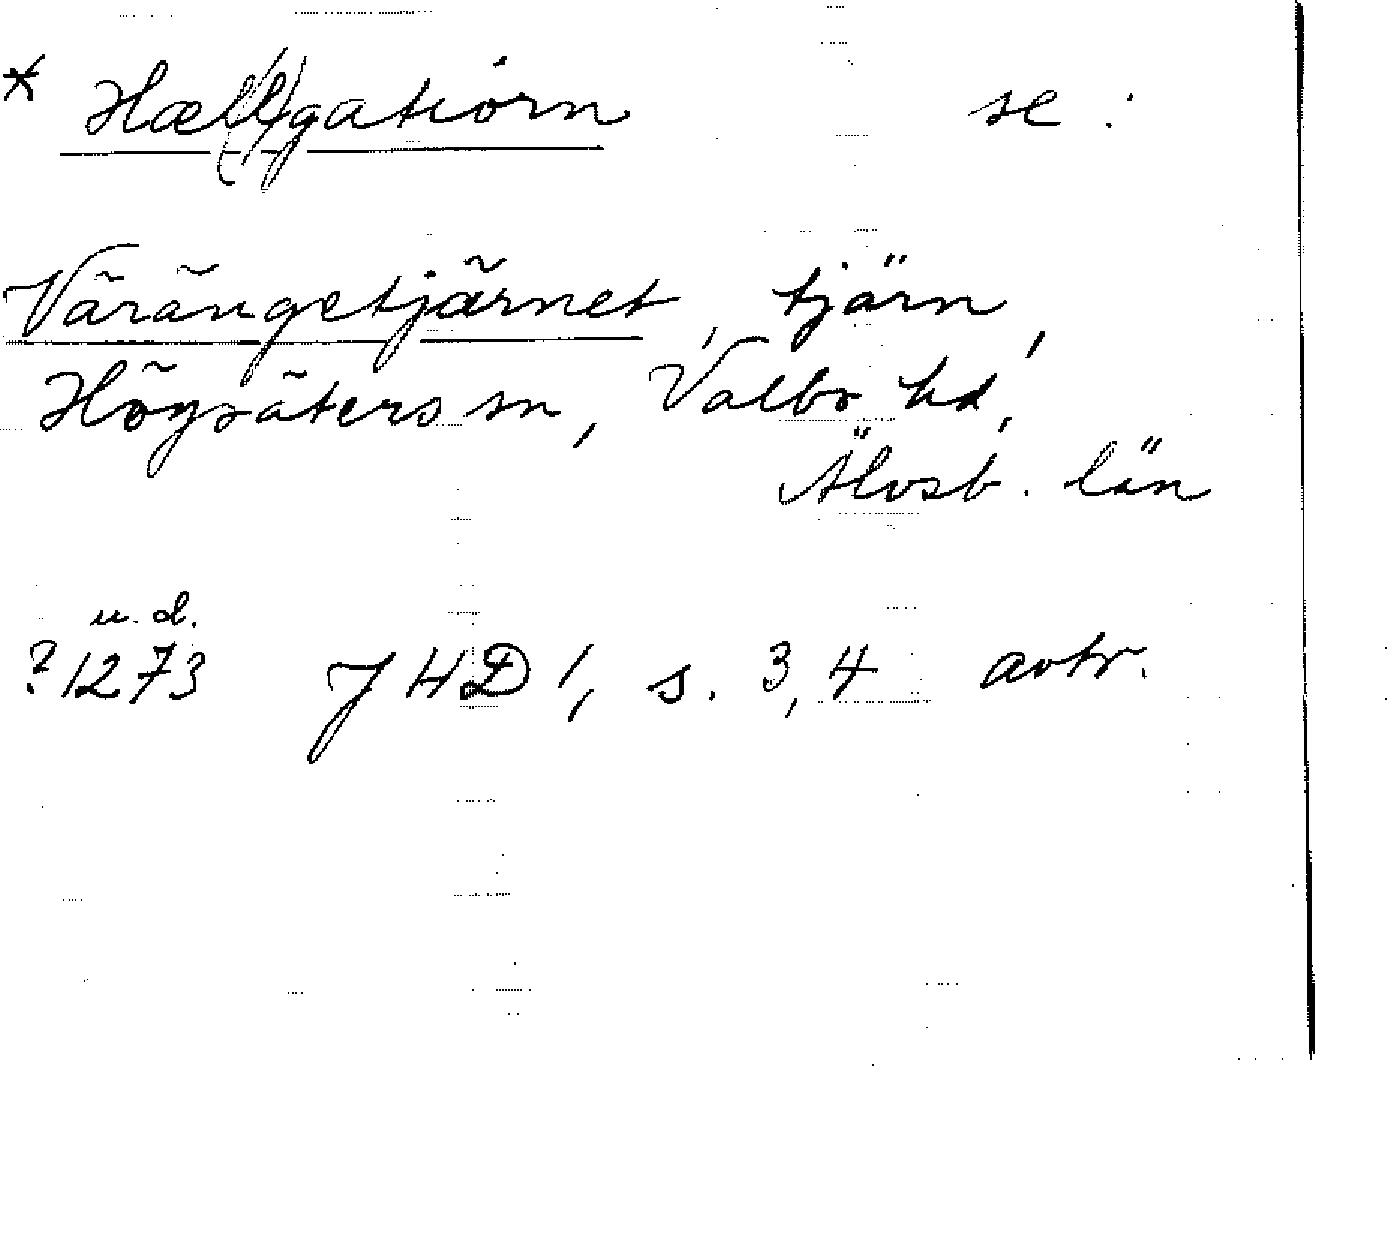 * Hæl(l)gatiorn se:
Värängetjärnet, tjärn,
Högsäters sn, Valbo hd,
Älvsb. län
u.d.
?1273 J4D1, s. 3,4 avtr.